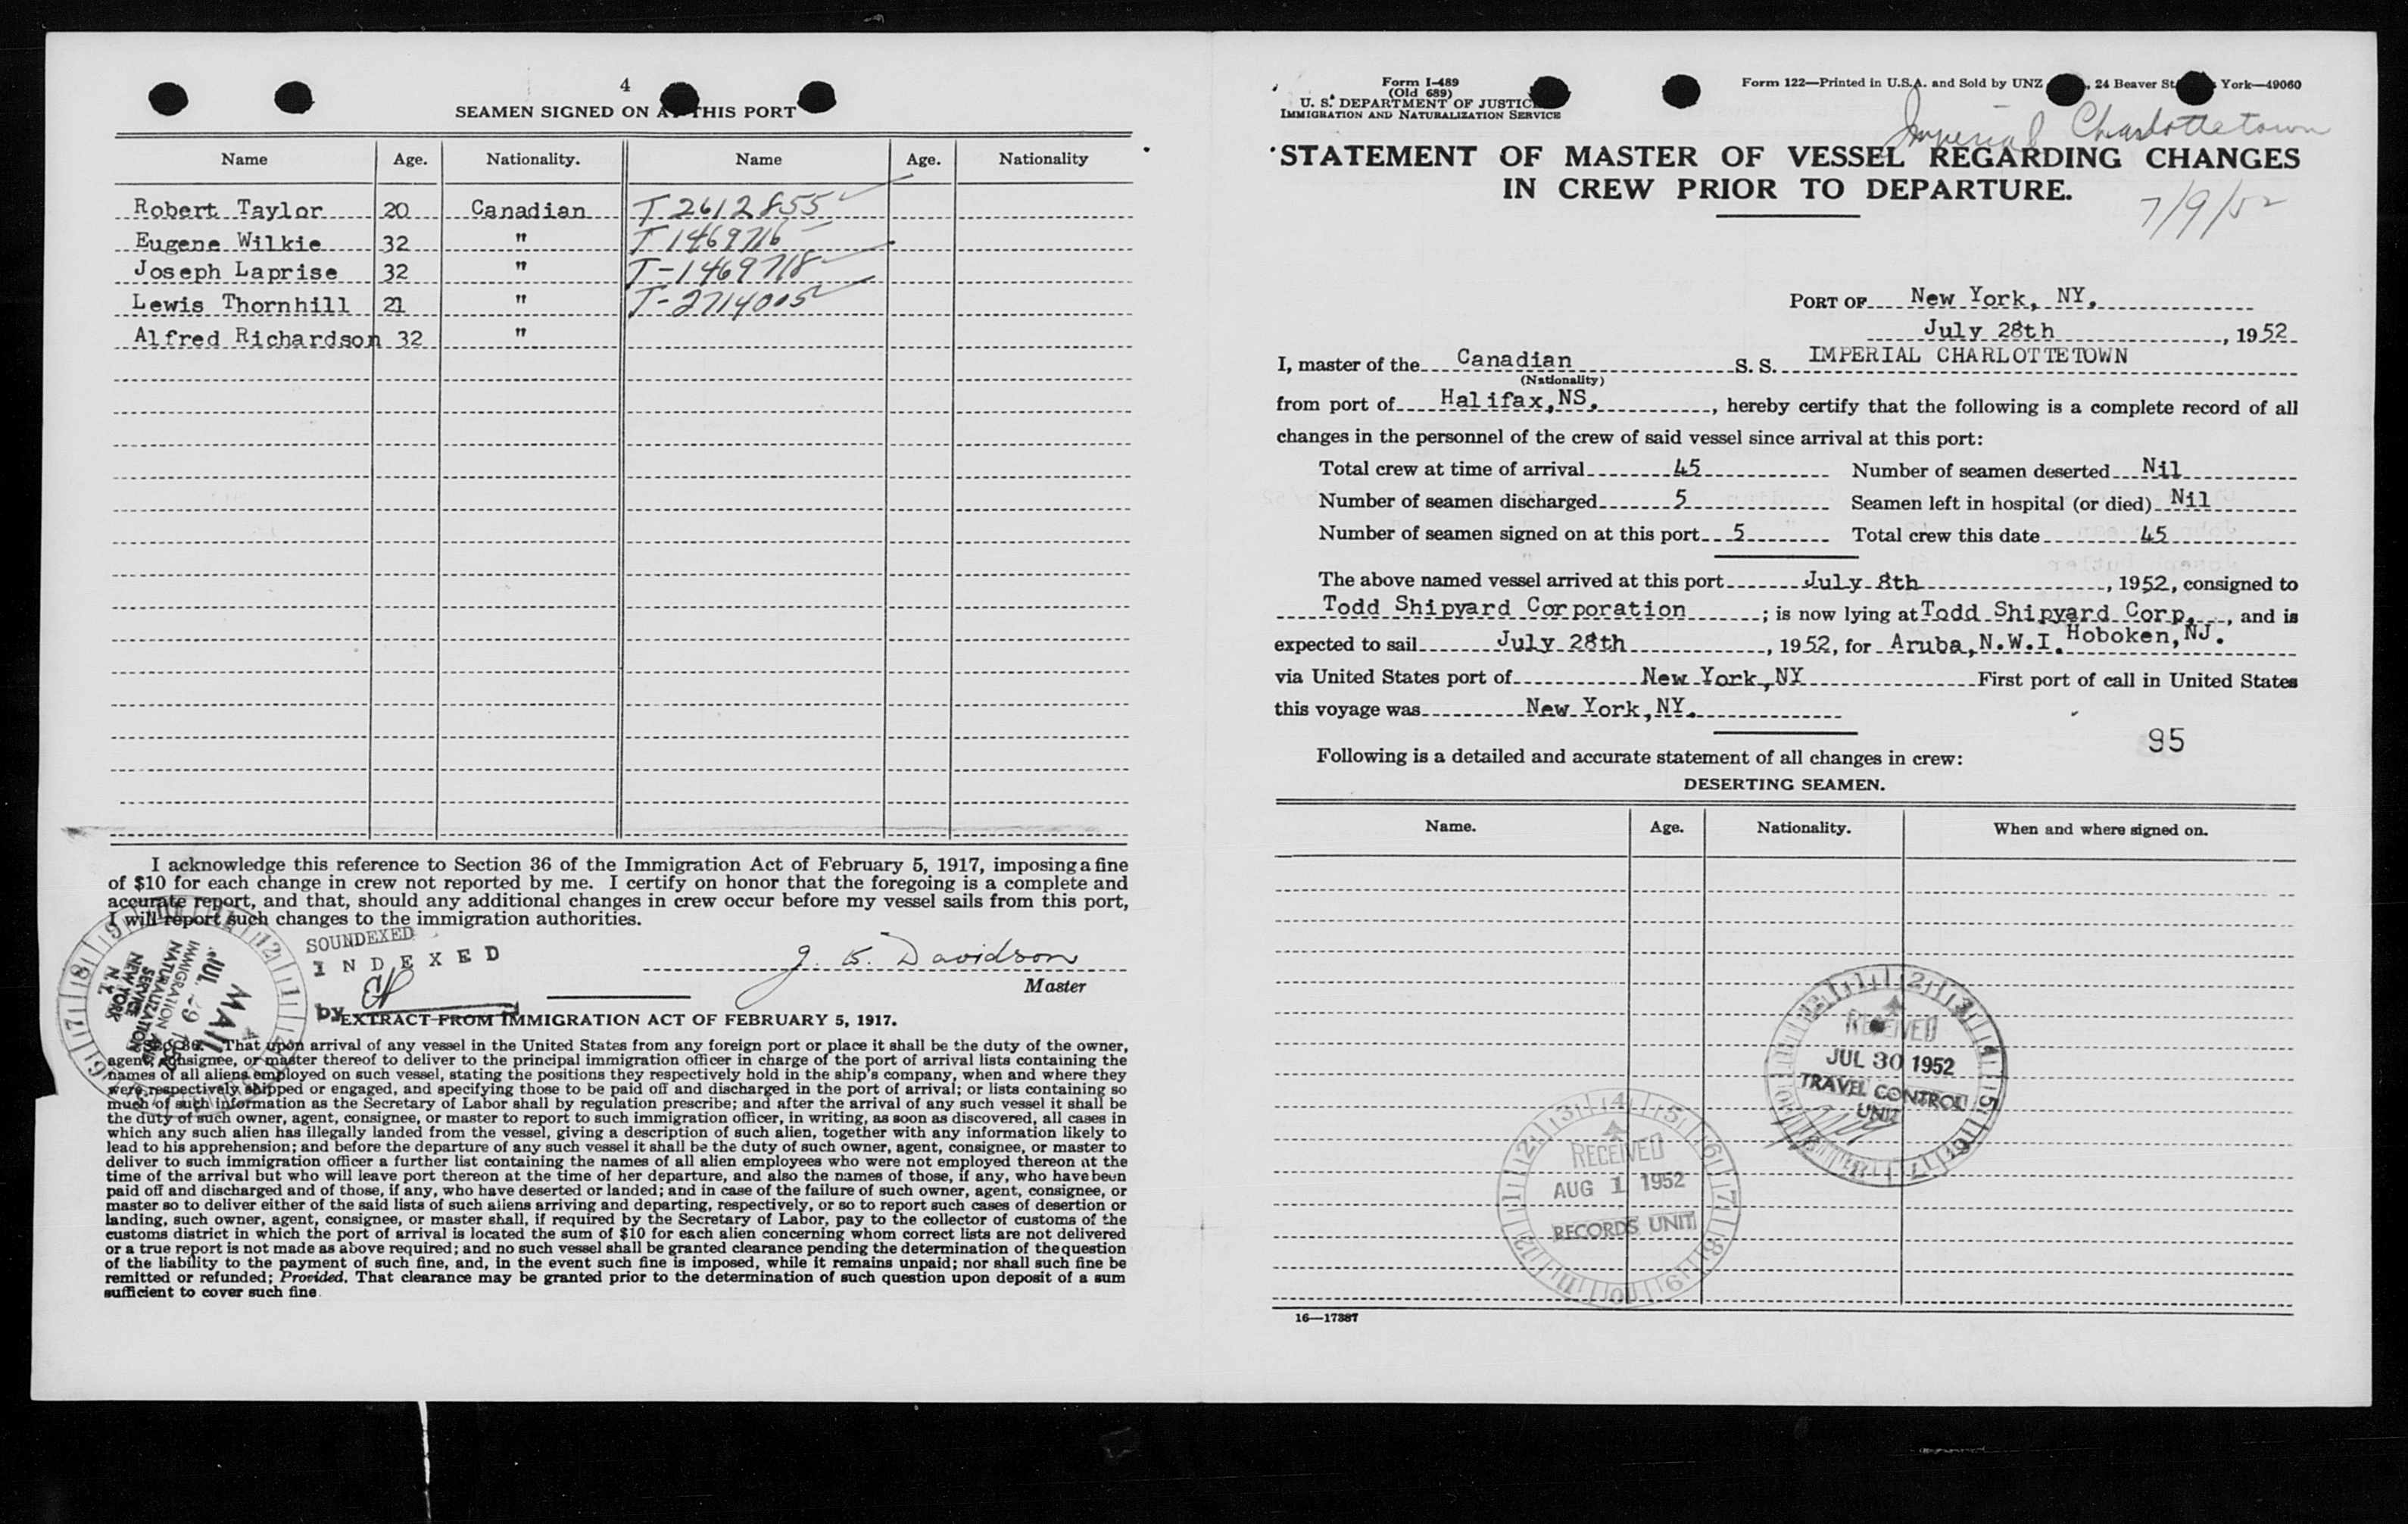 4
SEAMEN SIGNED ON AT THIS PORT
Name Age. Nationality. Name Age. Nationality
Robert Taylor 20 Canadian T 2612855
Eugene Wilkie 32 " T 1469716
Joseph Laprise 32 " T-1469718
Lewis Thornhill 21 " T-2714005
Alfred Richardson 32 "
I acknowledge this reference to Section 36 of the Immigration Act of February 5, 1917, imposing a fine
of $10 for each change in crew not reported by me. I certify on honor that the foregoing is a complete and
accurate report, and that, should any additional changes in crew occur before my vessel sails from this port,
I will report such changes to the immigration authorities.
SOUNDEXED
INDEXED
by
J. B. Davidson
Master
MAIL
JUL 29
IMMIGRATION
NATURALIZATION
SERVICE
NEW YORK
N.Y.
EXTRACT FROM IMMIGRATION ACT OF FEBRUARY 5, 1917.
Sec. 36. That upon arrival of any vessel in the United States from any foreign port or place it shall be the duty of the owner,
agent, consignee, or master thereof to deliver to the principal immigration officer in charge of the port of arrival lists containing the
names of all aliens employed on such vessel, stating the positions they respectively hold in the ship's company, when and where they
were respectively shipped or engaged, and specifying those to be paid off and discharged in the port of arrival; or lists containing so
much of such information as the Secretary of Labor shall by regulation prescribe; and after the arrival of any such vessel it shall be
the duty of such owner, agent, consignee, or master to report to such immigration officer, in writing, as soon as discovered, all cases in
which any such alien has illegally landed from the vessel, giving a description of such alien, together with any information likely to
lead to his apprehension; and before the departure of any such vessel it shall be the duty of such owner, agent, consignee, or master to
deliver to such immigration officer a further list containing the names of all alien employees who were not employed thereon at the
time of the arrival but who will leave port thereon at the time of her departure, and also the names of those, if any, who have been
paid off and discharged and of those, if any, who have deserted or landed; and in case of the failure of such owner, agent, consignee, or
master so to deliver either of the said lists of such aliens arriving and departing, respectively, or so to report such cases of desertion or
landing, such owner, agent, consignee, or master shall, if required by the Secretary of Labor, pay to the collector of customs of the
customs district in which the port of arrival is located the sum of $10 for each alien concerning whom correct lists are not delivered
or a true report is not made as above required; and no such vessel shall be granted clearance pending the determination of the question
of the liability to the payment of such fine, and, in the event such fine is imposed, while it remains unpaid; nor shall such fine be
remitted or refunded; Provided, That clearance may be granted prior to the determination of such question upon deposit of a sum
sufficient to cover such fine.
Form I-489
(Old 689)
U. S. DEPARTMENT OF JUSTICE
IMMIGRATION AND NATURALIZATION SERVICE
Form 122—Printed in U.S.A. and Sold by UNZ 24 Beaver St York—49060
Imperial Charlottetown
STATEMENT OF MASTER OF VESSEL REGARDING CHANGES
IN CREW PRIOR TO DEPARTURE.
7/9/52
PORT OF New York, NY,
July 28th, 1952
I, master of the Canadian S. S. IMPERIAL CHARLOTTETOWN
(Nationality)
from port of Halifax,NS., hereby certify that the following is a complete record of all
changes in the personnel of the crew of said vessel since arrival at this port:
Total crew at time of arrival 45 Number of seamen deserted Nil
Number of seamen discharged 5 Seamen left in hospital (or died) Nil
Number of seamen signed on at this port 5 Total crew this date 45
The above named vessel arrived at this port July 8th, 1952, consigned to
Todd Shipyard Corporation; is now lying at Todd Shipyard Corp., and is
Hoboken,NJ.
expected to sail July 28th, 1952, for Aruba,N.W.I.
via United States port of New York,NY First port of call in United States
this voyage was New York,NY.
95
Following is a detailed and accurate statement of all changes in crew:
DESERTING SEAMEN.
Name. Age. Nationality. When and where signed on.
RECEIVED
JUL 30 1952
TRAVEL CONTROL
UNIT
RECEIVED
AUG 1 1952
RECORDS UNIT
16—17387